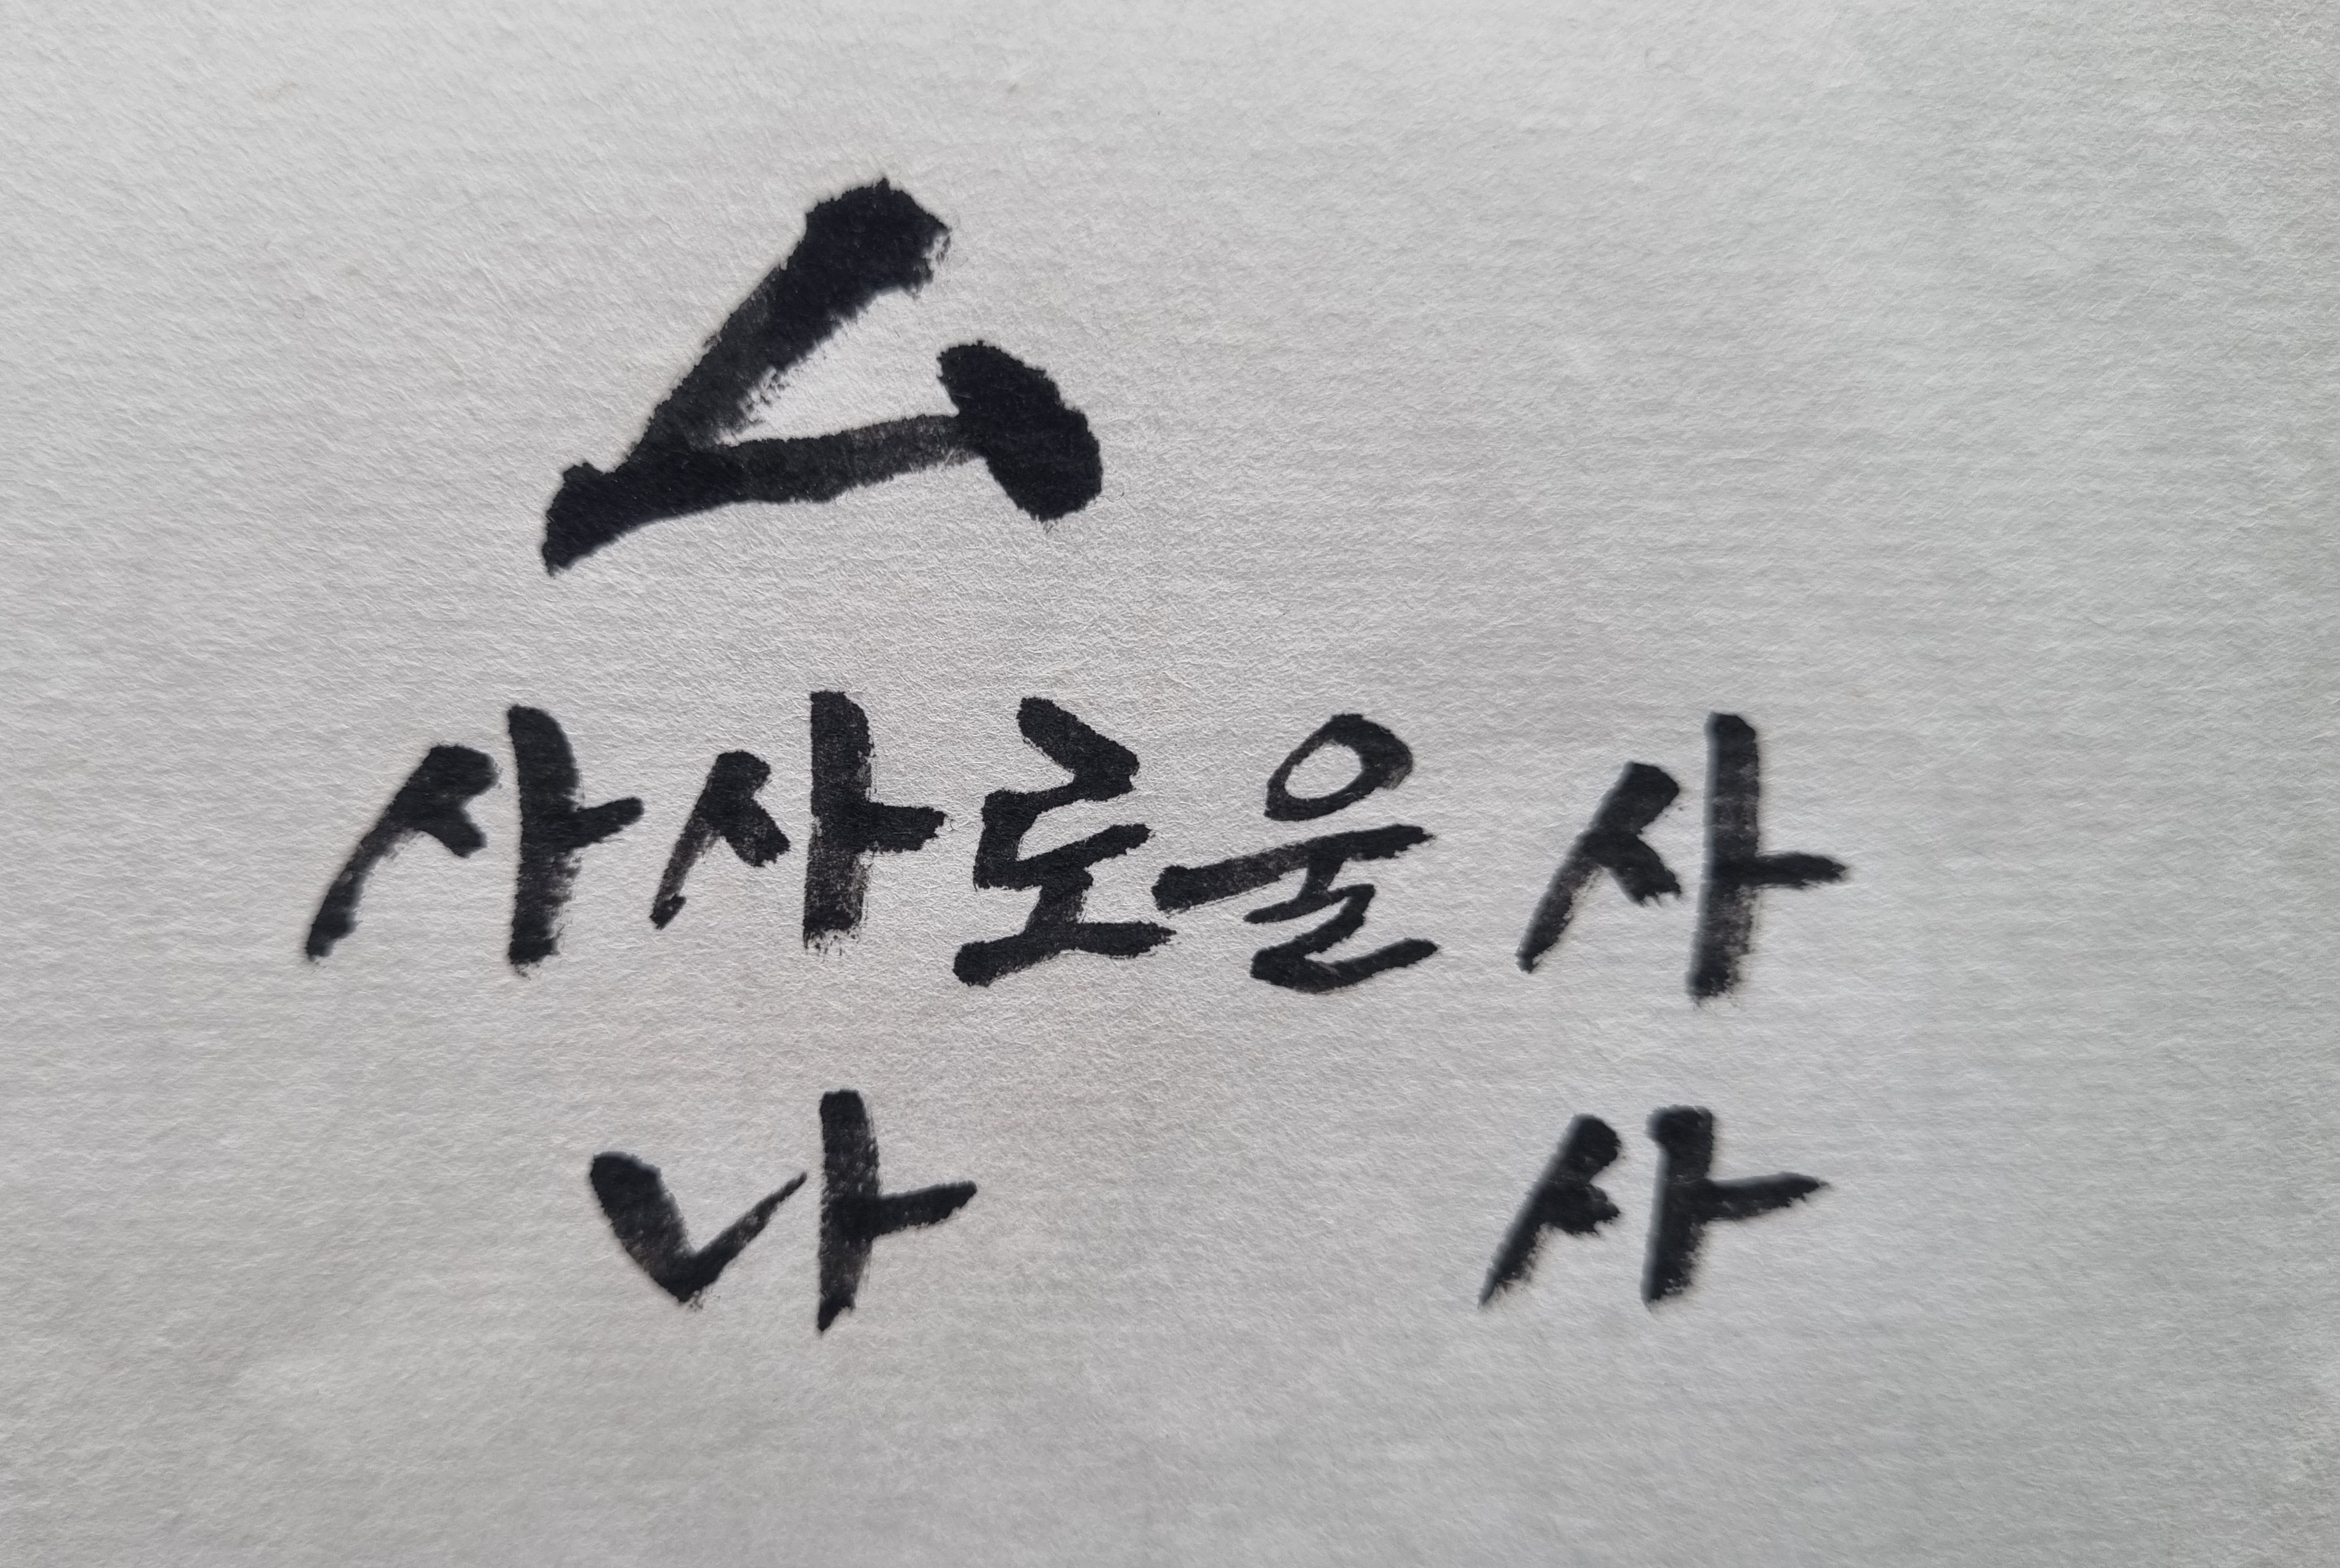 厶
사사로울 사
나 사